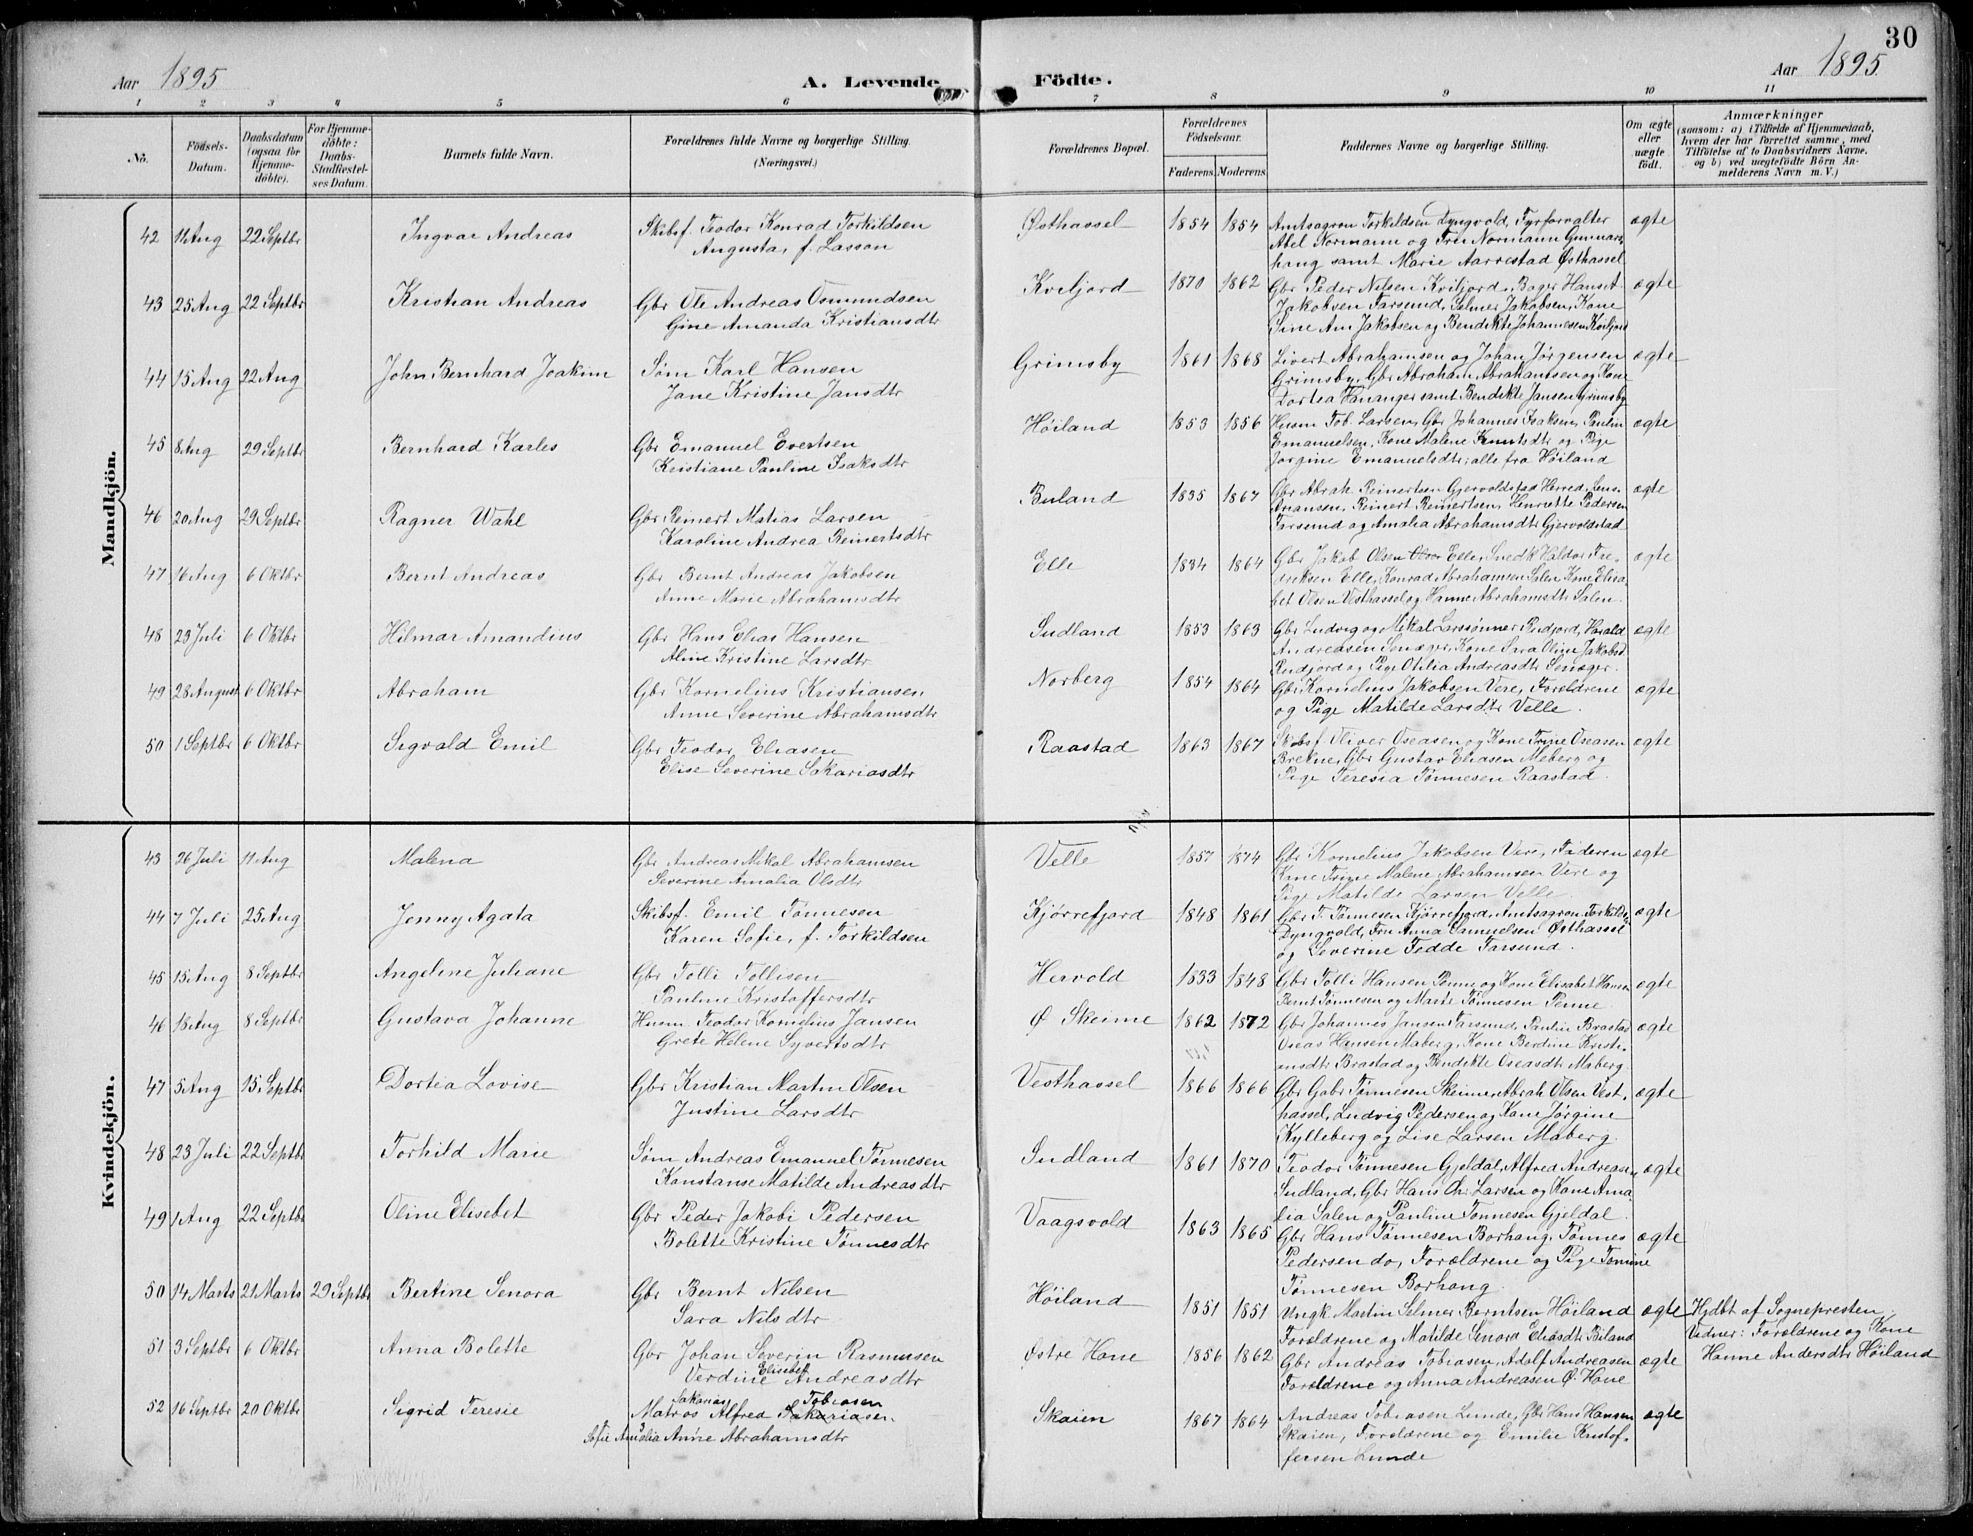 30
Aar 1895
A. Levende Födte.
Aar 1895
1 2 3 4 5 6 7 8 9 10 11
No.
Födsels-Datum.
Daabsdatum (ogsaa for Hjemmedöbte).
For Hjemmedöbte: Daabs-Stadfæstelses Datum.
Barnets fulde Navn.
Forældrenes fulde Navne og borgerlige Stilling. (Næringsvei.)
Forældrenes Bopæl.
Forældrenes Födselsaar.
Faderens. Moderens.
Faddernes Navne og borgerlige Stilling.
Om ægte eller uægte födt.
Anmærkninger
(saasom: a) i Tilfælde af Hjemmedaab, hvem der har forrettet samme, med Tilföielse af to Daabsvidners Navne, og b) ved uægtefödte Börn Anmelderens Navn m. V.)
Mandkjön.
42 11 Aug 22 Septbr Ingvar Andreas Skibsf. Teodor Konrad Torkildsen Østhassel 1854 1854 Amtsagron Torkeldsen Dyngvold, Fyrforvalter ægte
Augusta, f. Larson Abel Normann og Fru Normann Gunnars-
haug samt Marie Aarrestad Østhassel
43 25 Aug 22 Septbr Kristian Andreas Gbr Ole Andreas Osmundsen Kviljord 1870 1862 Gbr Peder Nilsen Kviljord, Bager Hans A ægte
Gine Amanda Kristiansdtr Jakobsen Farsund, Selmer Jakobsen, Kone
Sine Am Jakobsen og Bendikte Johannesen Kviljord
44 15 Aug 22 Aug John Bernhard Joakim Søm Karl Hansen Grimsby 1861 1868 Sivert Abrahamsen og Johan Jørgensen ægte
Jane Kristine Jansdtr Grimsby, Gbr Abraham Abrahamsen og Kone
Dortea Hananger samt Bendikte Jansen Grimsby
45 8 Aug 29 Septbr Bernhard Karles Gbr Emanuel Evertsen Høiland 1853 1856 Husm Tob. Larsen, Gbr Johannes Isaksen, Paulin ægte
Kristiane Pauline Isaksdtr Emanuelsen, Kone Malene Knutsdtr og Pige
Jorgine Emanuelsdtr; alle fra Høiland
46 20 Aug 29 Septbr Ragner Wahl Gbr Reinert Matias Larsen Buland 1835 1867 Gbr Abrah. Reinertsen Gjervoldstad Herred, Jens ægte
Karoline Andrea Reinertsdtr Anansen, Reinert Reinertsen, Henriette Pedersen
Farsund og Amalia Abrahamsdtr Gjervoldstad
47 16 Aug 6 Oktbr Bernt Andreas Gbr Bernt Andreas Jakobsen Elle 1834 1864 Gbr Jakob Olsen Elle, Snedk Haldor Fre- ægte
Anne Marie Abrahamsdtr driksen Elle, Konrad Abrahamsen Salen Kone Elisa-
bet Olsen Vesthassel og Hanne Abrahamsdtr Salen.
48 23 Juli 6 Oktbr Hilmar Amandius Gbr Hans Elias Hansen Sudland 1853 1863 Gbr Ludvig og Mikal Larssønner Rudjord, Harald ægte
Aline Kristine Larsdtr Andreasen Senæger, Kone Sara Oline Jakobsd
Rudjord og Pige Otilia Andreasdtr Senæger.
49 28 August 6 Oktbr Abraham Gbr Kornelius Kristiansen Norberg 1854 1864 Gbr Kornelius Jakobsen Vere, Forældrene ægte
Anne Severine Abrahamsdtr og Pige Matilde Larsdtr Velle.
50 1 Septbr 6 Oktbr Sigvald Emil Gbr Teodor Eliasen Raastad 1863 1867 Skibsf. Oliver Oseasen og Kone Trine Oseasen ægte
Elise Severine Sakariasdtr Brekne, Gbr Gustav Eliasen Meberg og
Pige Teresia Tønnesen Raastad.
Kvindekjön.
43 26 Juli 11 Aug Malena Gbr Andreas Mikal Abrahamsen Velle 1857 1874 Gbr Kornelius Jakobsen Vere, Faderen ægte
Severine Amalia Olsdtr Kone Trine Malene Abrahamsen Vere og
Pige Matilde Larsen Velle
44 7 Juli 25 Aug Jenny Agata Skibsf. Emil Tønnesen Kjørrefjord 1848 1861 Gbr T. Tønnesen Kjørrefjord, Amtsagron Torkilds. ægte
Karen Sofie, f. Torkildsen Dyngvold, Fru Anna Samuelsen Østhassel
og Severine Tedde Farsund.
45 15 Aug 8 Septbr Angeline Juliane Gbr Tolli Tollisen Hervold 1833 1848 Gbr Tolli Hansen Penne og Kone Elisabet Hansen ægte
Pauline Kristoffersdtr Bernt Tønnesen og Marte Tønnesen Penne
46 18 Aug 8 Septbr Gustava Johanne Husm Teodor Kornelius Jansen Ø Skeime 1862 1872 Gbr Johannes Jansen Farsund, Paulin Brastad ægte
Grete Helene Syvertsdtr Oseas Hansen Maberg, Kone Berdine Kristi-
ansdtr Brastad og Bendikte Oseasdtr Maberg
47 5 Aug 15 Septbr Dortea Lovise Gbr Kristian Martin Olsen Vesthassel 1866 1866 Gbr Gabr. Tønnesen Skeime, Abrah Olsen Vest- ægte
Justine Larsdtr hassel, Ludvig Pedersen og Kone Jørgine
Kylleberg og Lise Larsen Maberg.
48 23 Juli 22 Septbr Torhild Marie Søm Andreas Emanuel Tønnesen Sudland 1861 1870 Teodor Tønnesen Gjeldal, Alfred Andreasen ægte
Konstanse Matilde Andreasdtr Sudland, Gbr Hans Chr Larsen og Kone Ama
lia Salen og Pauline Tønnesen Gjeldal.
49 1 Aug 22 Septbr Oline Elisebet Gbr Peder Jakobi Pedersen Vaagsvold 1863 1865 Gbr Hans Tønnesen Borhaug, Tønnes ægte
Bolette Kristine Tønnesdtr Pedersen do, Forældrene og Pige Tomine
Tønnesen Borhaug.
50 14 Marts 21 Marts 29 Septbr Bertine Senora Gbr Bernt Nilsen Høiland 1851 1851 Ungk. Martin Selmer Berntsen Høiland ægte Hjdbt af Sognepresten.
Sara Nilsdtr Forældrene og Matilde Senora Eliasdtr Biland Vidner: Forældrene og Kone
Hanne Andersdtr Høiland
51 3 Septbr 6 Oktbr Anna Bolette Gbr Johan Severin Rasmusen Østre Hone 1856 1862 Gbr Andreas Tobiasen, Adolf Andreasen ægte
Verdine Elisebet Andreasdtr Forældrene og Anna Andreasen Ø. Hone
52 16 Septbr 20 Oktbr Sigrid Teresie Matros Alfred Sakarias Tobiasen Sakariasen Skaien 1867 1864 Andreas Tobiasen Lunde, Gbr Hans Hansen ægte
Sofie Amalia Anne Abrahamsdtr Skaien, Forældrene og Emilie Kristof-
fersen Lunde